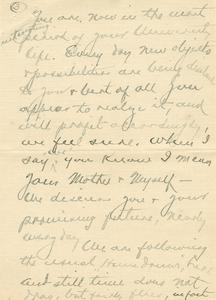 You are now in the most
interesting period of your University
life. Every day new objects
& possibilities are being
to you & best of all you
appear to realize it, and
will profit accordingly,
we feel sure. When I
say, you know I mean
Your Mother & Myself —
We discuss you & your
promising future, nearly
every day.
We are following
the usual
and still time does not
drag, but